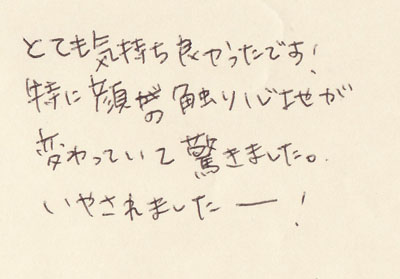 とても気持ち良かったです!
特に顔の触り心地が
変わっていて驚きました。
いやされましたー!